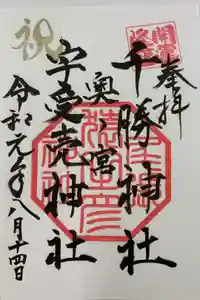 奉拝
千勝神社
奥ノ宮
宇受売神社
祝
令和元年八月十四日